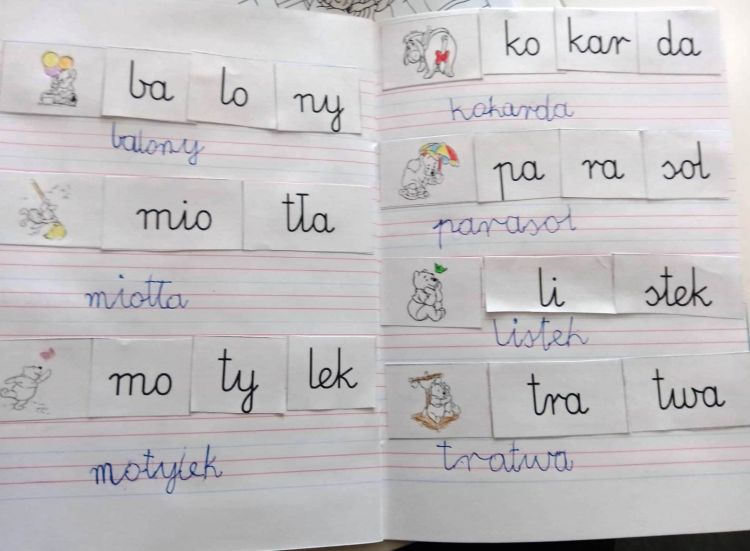 ba lo ny
balony
mio tła
miotła
mo ty lek
motylek
ko kar da
kokarda
pa ra sol
parasol
li stek
listek
tra twa
tratwa